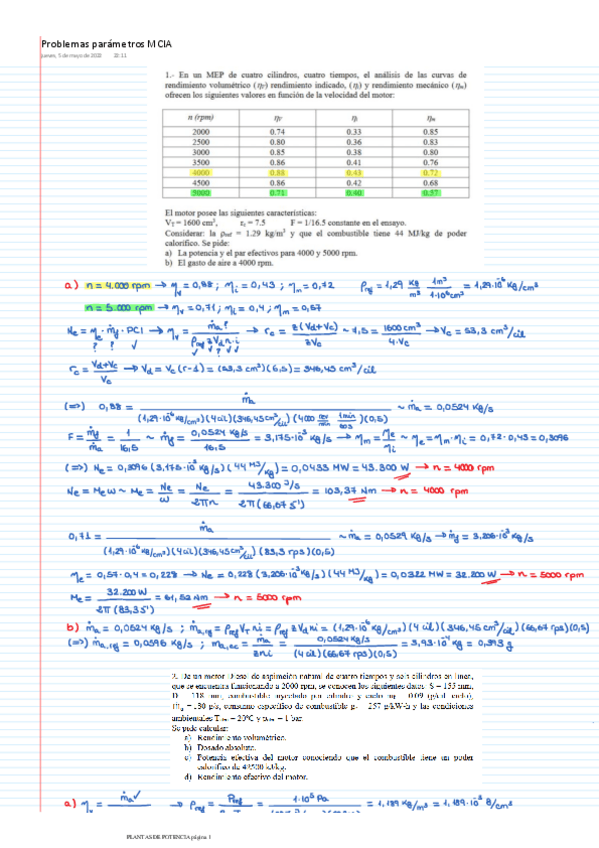 Problemas parámetros MCIA
jueves, 5 de mayo de 2022 22:11
1.- En un MEP de cuatro cilindros, cuatro tiempos, el análisis de las curvas de
rendimiento volumétrico (ηV) rendimiento indicado, (ηi) y rendimiento mecánico (ηm)
ofrecen los siguientes valores en función de la velocidad del motor:
n (rpm) ηV ηi ηm
2000 0.74 0.33 0.85
2500 0.80 0.36 0.83
3000 0.85 0.38 0.80
3500 0.86 0.41 0.76
4000 0.88 0.43 0.72
4500 0.86 0.42 0.68
5000 0.71 0.40 0.57
El motor posee las siguientes características:
VT = 1600 cm³, rc = 7.5 F = 1/16.5 constante en el ensayo.
Considerar: la ρref = 1.29 kg/m³ y que el combustible tiene 44 MJ/kg de poder
calorífico. Se pide:
a) La potencia y el par efectivos para 4000 y 5000 rpm.
b) El gasto de aire a 4000 rpm.
a) n = 4.000 rpm → ηv = 0,88 ; ηi = 0,43 ; ηm = 0,72 ρref = 1,29 kg/m³ · 1m³/1·10⁶cm³ = 1,29·10⁻⁶ kg/cm³
n = 5.000 rpm → ηv = 0,71 ; ηi = 0,4 ; ηm = 0,57
Ne = ηe · ṁf · PCI → ηv = ṁa ? / ρref z Vd n · i → rc = z(Vd+Vc) / zVc ~ 7,5 = 1600 cm³ / 4·Vc → Vc = 53,3 cm³/cil
rc = Vd+Vc / Vc → Vd = Vc (r-1) = (53,3 cm³)(6,5) = 346,45 cm³/cil
(=>) 0,88 = ṁa / (1,29·10⁻⁶ kg/cm³)(4 cil)(346,45 cm³/cil)(4000 rev/min · 1min/60s)(0,5) ~ ṁa = 0,0524 kg/s
F = ṁf/ṁa = 1/16,5 ~ ṁf = 0,0524 kg/s / 16,5 = 3,175·10⁻³ kg/s → ηm = ηe/ηi ~ ηe = ηm·ηi = 0,72·0,43 = 0,3096
(=>) Ne = 0,3096 (3,175·10⁻³ kg/s)(44 MJ/kg) = 0,0433 MW = 43.300 W → n = 4000 rpm
Ne = Me w ~ Me = Ne/w = Ne/2πn = 43.300 J/s / 2π(66,67 s⁻¹) = 103,37 Nm → n = 4000 rpm
0,71 = ṁa / (1,29·10⁻⁶ kg/cm³)(4 cil)(346,45 cm³/cil)(83,3 rps)(0,5) ~ ṁa = 0,0529 kg/s → ṁf = 3,206·10⁻³ kg/s
ηe = 0,57·0,4 = 0,228 → Ne = 0,228 (3,206·10⁻³ kg/s)(44 MJ/kg) = 0,0322 MW = 32.200 W → n = 5000 rpm
Me = 32.200 W / 2π (83,3 s⁻¹) = 61,52 Nm → n = 5000 rpm
b) ṁa = 0,0524 kg/s ; ṁa,ref = ρref VT n i = ρref z Vd n i = (1,29·10⁻⁶ kg/cm³)(4 cil)(346,45 cm³/cil)(66,67 rps)(0,5)
(=>) ṁa,ref = 0,0596 kg/s ; = ṁa / z n i = 0,0524 kg/s / (4 cil)(66,67 rps)(0,5) = 3,93·10⁻⁴ kg = 0,393 g
2. De un motor Diesel de aspiración natural de cuatro tiempos y seis cilindros en línea,
que se encuentra funcionando a 2000 rpm, se conocen los siguientes datos: S = 155 mm,
D = 118 mm, combustible inyectado por cilindro y ciclo = 0.09 (g/cil ciclo),
g/s, consumo específico de combustible = 257 g/kWh y las condiciones
ambientales = 20°C y = 1 bar.
Se pide calcular:
a) Rendimiento volumétrico.
b) Dosado absoluto.
c) Potencia efectiva del motor conociendo que el combustible tiene un poder
calorífico de 42500 kJ/kg.
d) Rendimiento efectivo del motor.
a) ηv = ṁa → ρref = Pref = 1·10⁵ Pa = 1,189 kg/m³ = 1,189·10⁻³ g/cm³
PLANTAS DE POTENCIA página 1